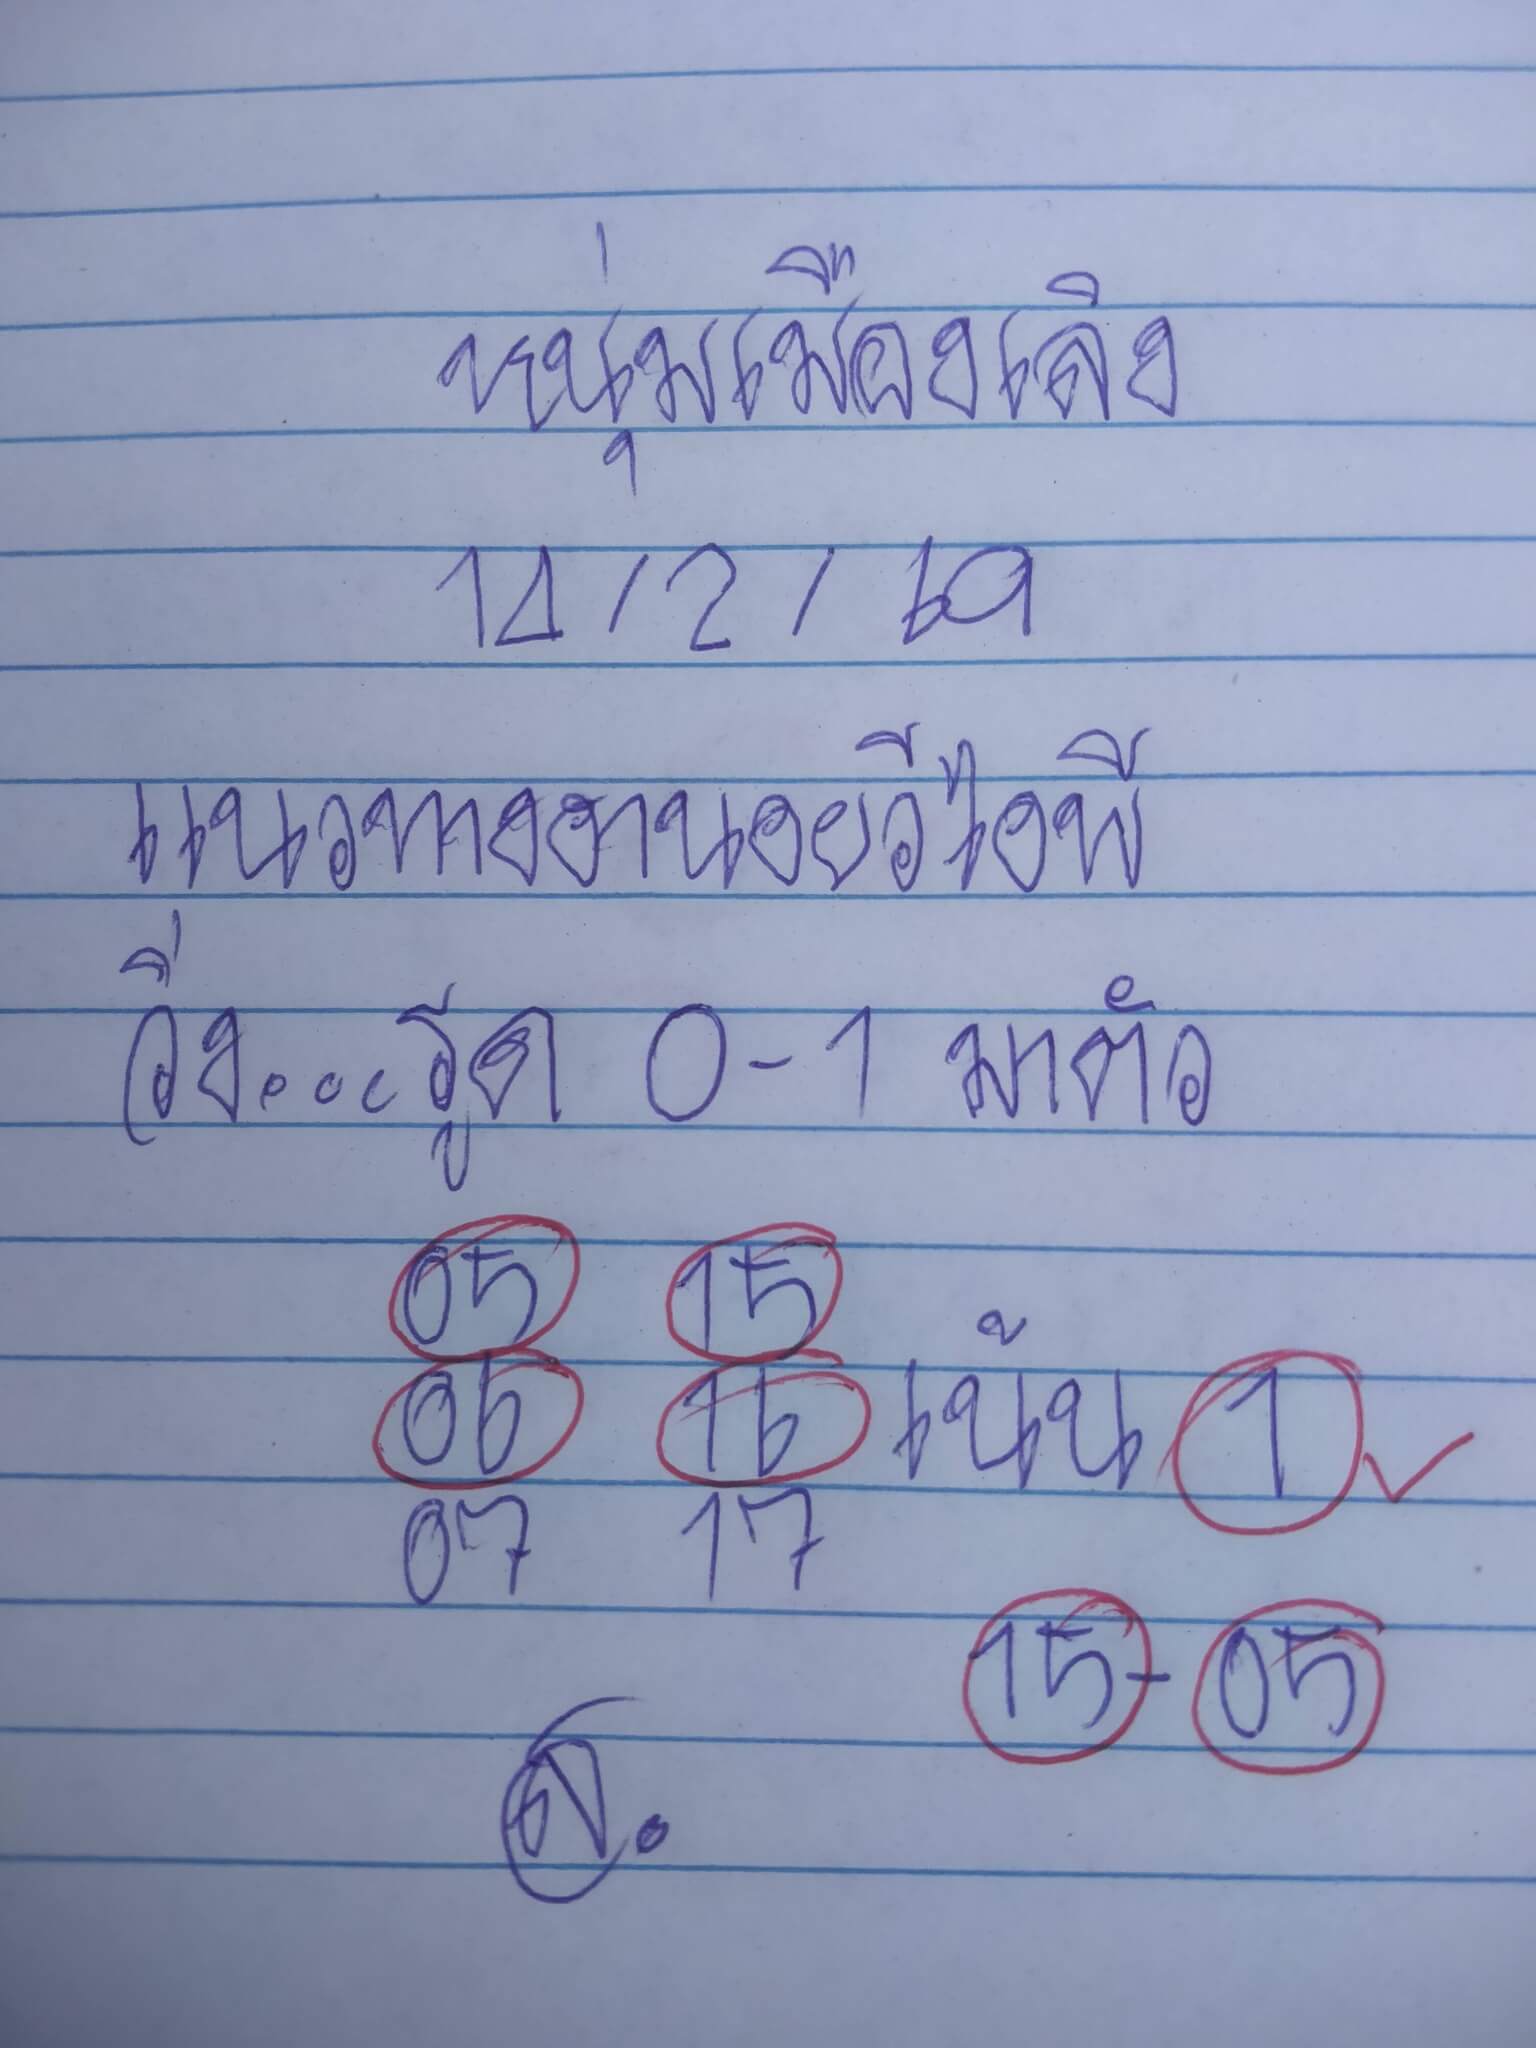 หนุ่มเมืองเลิง
14/2/69
แนวทางฮานอยวีไอพี
วิ่ง...รูด 0-1 มาตัว
05 15
06 16 เน้น 1
07 17
15-05